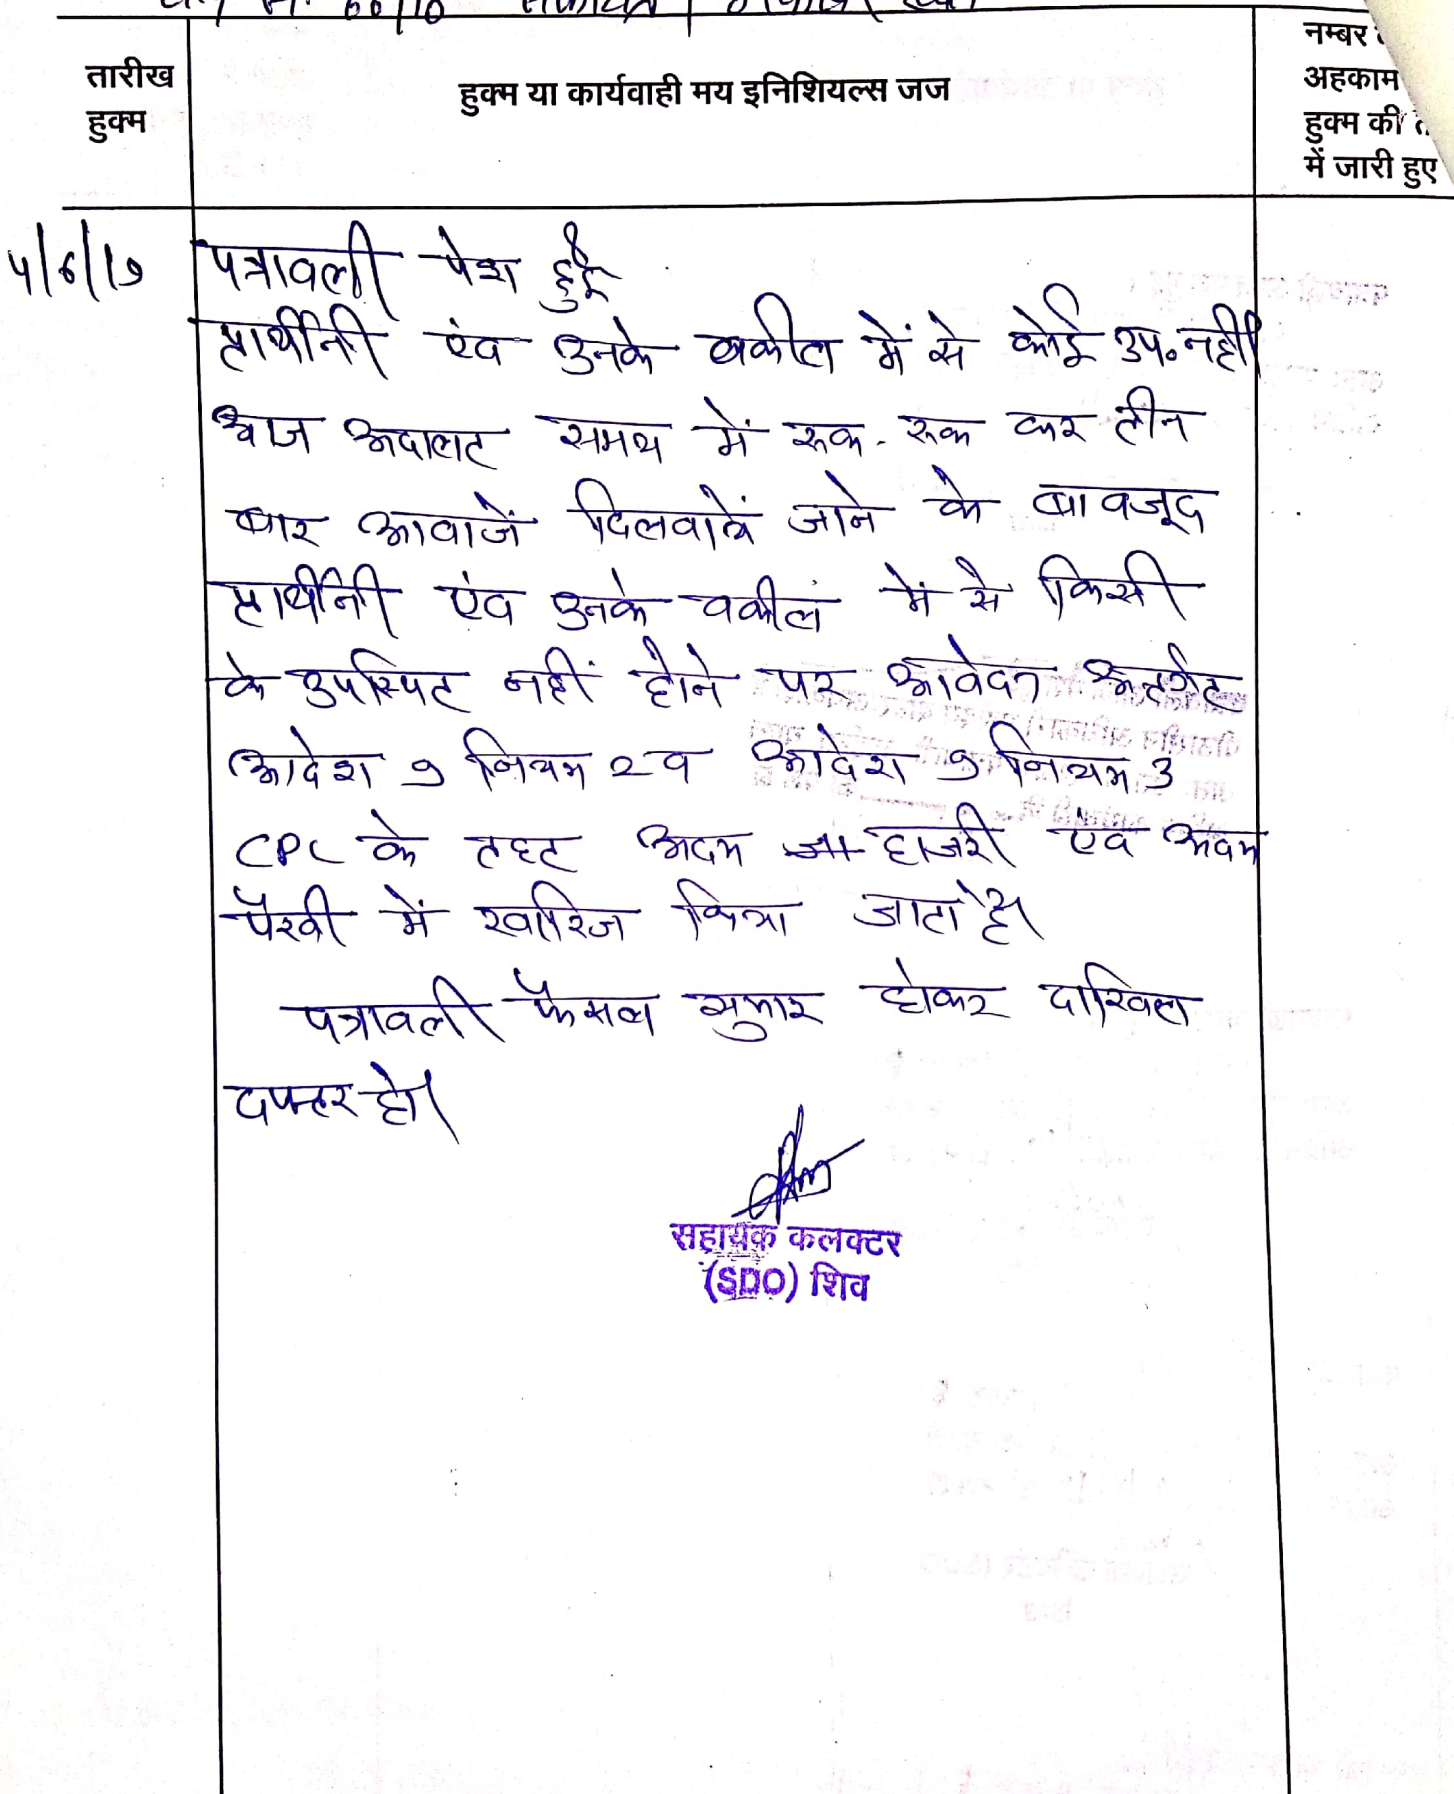 तारीख
हुक्म
हुक्म या कार्यवाही मय इनिशियल्स जज
नम्बर
अहकाम
हुक्म की
में जारी हुए
पत्रावली पेश हुई
प्रार्थीनी एंव उनके वकील में से कोई उप० नहीं
आज अदालत समय में रूक-रूक कर तीन
बार आवाजें दिलवायें जाने के बावजूद
प्रार्थीनी एंव उनके वकील में से किसी
के उपस्थित नहीं होने पर आवेदन अन्तर्गत
आदेश 9 नियम 2 व आदेश 9 नियम 3
CPC के तहत अदम हाजरी एवं अदम
पैरवी में खारिज किया जाता है।
पत्रावली फैसल सुमार होकर दाखिल
दफ्तर हो।
सहायक कलक्टर
(SDO) शिव